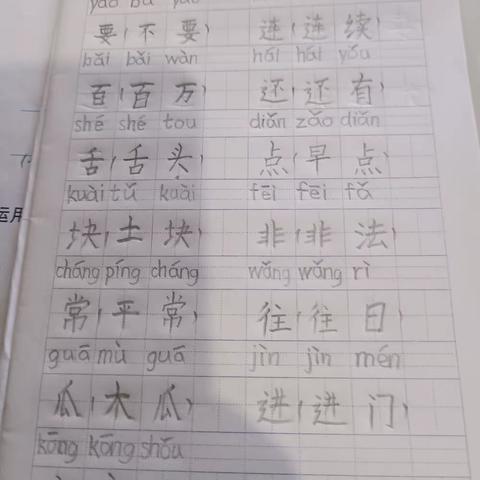 yào bú yào
要(不要) 连(连续)
bǎi bǎi wàn hái hái yǒu
百(百万) 还(还有)
shé shé tou diǎn zǎo diǎn
舌(舌头) 点(早点)
kuài tǔ kuài fēi fēi fǎ
块(土块) 非(非法)
cháng píng cháng wǎng wǎng rì
常(平常) 往(往日)
guā mù guā jìn jìn mén
瓜(木瓜) 进(进门)
kōng kōng shǒu
运用